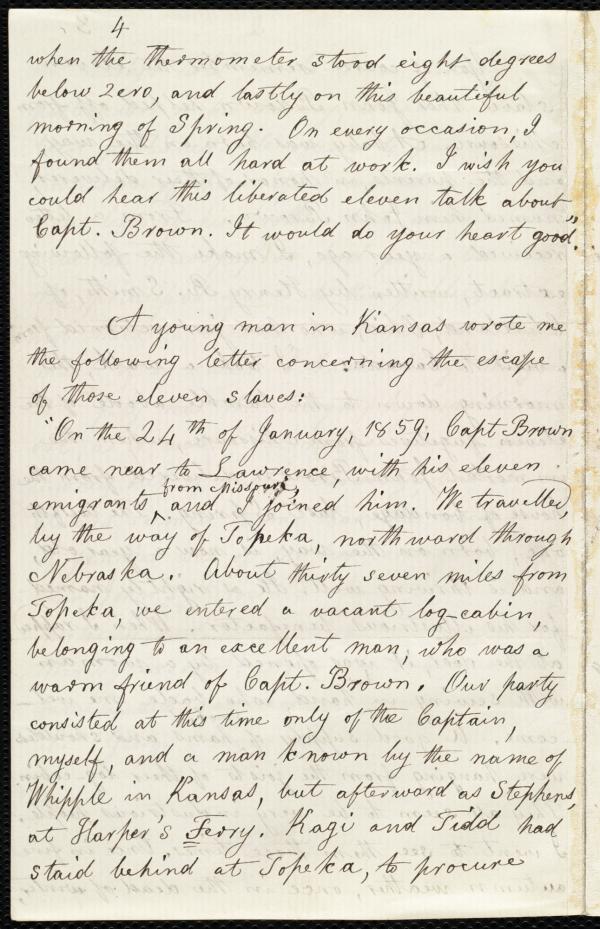 4
when the thermometer stood eight degrees
below zero, and lastly on this beautiful
morning of Spring. On every occasion, I
found them all hard at work. I wish you
could hear this liberated eleven talk about
Capt. Brown. It would do your heart good."
A young man in Kansas wrote me
the following letter concerning the escape
of those eleven slaves:
"On the 24th of January, 1859, Capt Brown
came near to Lawrence, with his eleven
from Missouri,
emigrants ‸ and I joined him. We travelled,
by the way of Topeka, northward through
Nebraska. About thirty seven miles from
Topeka, we entered a vacant log-cabin,
belonging to an excellent man, who was a
warm friend of Capt. Brown. Our party
consisted at this time only of the Captain,
myself, and a man known by the name of
Whipple in Kansas, but afterward as Stephens,
at Harper's Ferry. Kagi and Tidd had
staid behind at Topeka, to procure